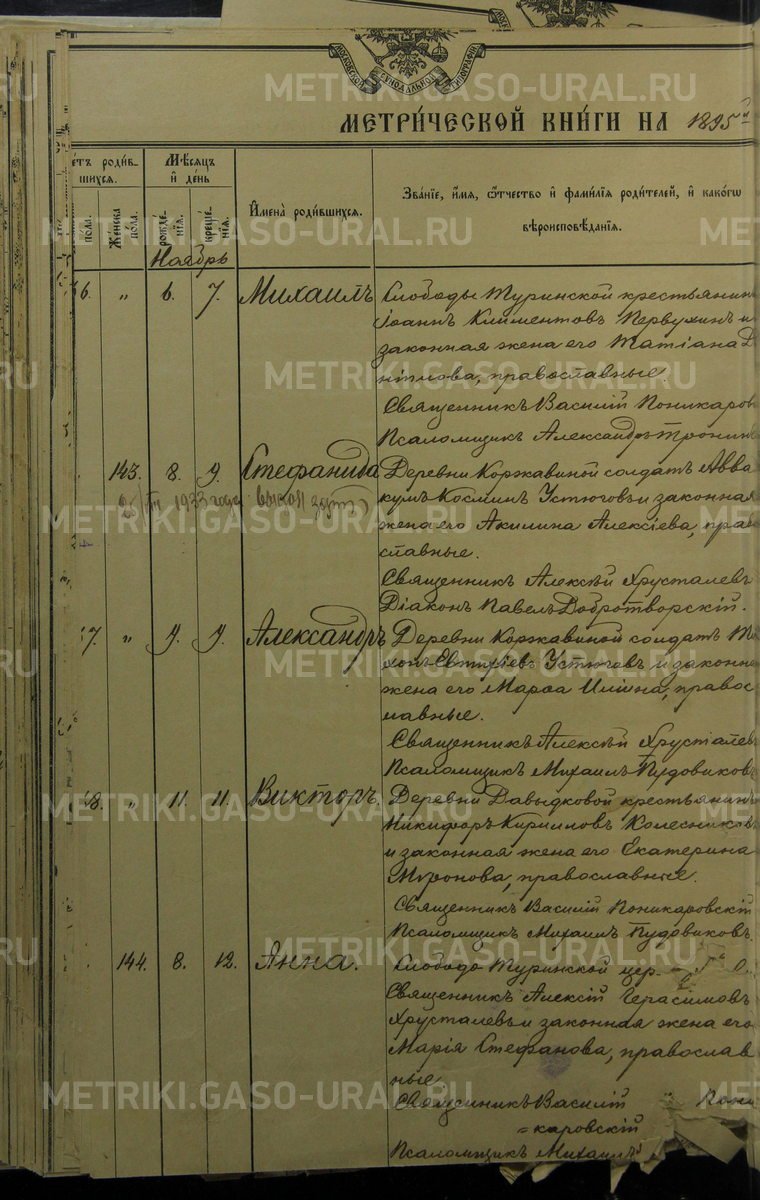 МОСКОВСКОЙ СѴНОДАЛЬНОЙ ТИПОГРАФІИ
METRIKI.GASO-URAL.RU
МЕТРИ́ЧЕСКОЙ КНИ́ГИ НА 1895
е́тъ роди́в-
шихся.
Мѣ́сяцъ
и҆ де́нь
И҆мена̀ роди́вшихся.
Зва́нїе, и҆́мя, ѻ҆́тчество и҆ фами́лїя роди́телей, и҆ како́гѡ
вѣроисповѣ́данїя.
по́ла.
Же́нска
по́ла.
рожде́-
нїя.
креще́-
нїя.
Ноябрь
6. „ 6. 7. Михаилъ Слободы Туринской крестьянинъ
Іоаннъ Климентовъ Первухинъ и
законная жена его Татіана
православные.
Священникъ Василій Поникаров
Псаломщикъ Александръ Тронинъ
143. 8. 9. Стефанида Деревни Коржавиной солдатъ Авва
кумъ Косминъ Устюговъ и законная
1933 года
жена его Акилина Алексіева, прав
славные.
Священникъ Алексѣй Хрусталевъ
Діаконъ Павелъ Добротворскій.
7. „ 9. 9. Александръ Деревни Коржавиной солдатъ
Устюговъ и законна
жена его Марѳа Ильина, правос
лавные.
Священникъ Алексѣй Хрусталевъ
Псаломщикъ Михаилъ Пудовиковъ
8. „ 11. 11. Викторъ. Деревни Давыдковой крестьянинъ
Никифоръ Кириловъ Колесниковъ
и законная жена его Екатерина
Миронова, православные.
Священникъ Василій Поникаровскій
Псаломщикъ Михаилъ Пудовиковъ.
144. 8. 12. Анна. Слободо Туринской цер.
Священникъ Алексій Герасимовъ
Хрусталевъ и законная жена его
Марія Стефанова, православ
ные.
Священникъ Василій Пони
=каровскій
Псаломщикъ Михаилъ